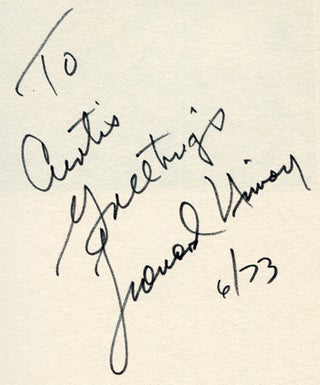 To
Curtis
Greetings
Leonard Nimoy
6/73